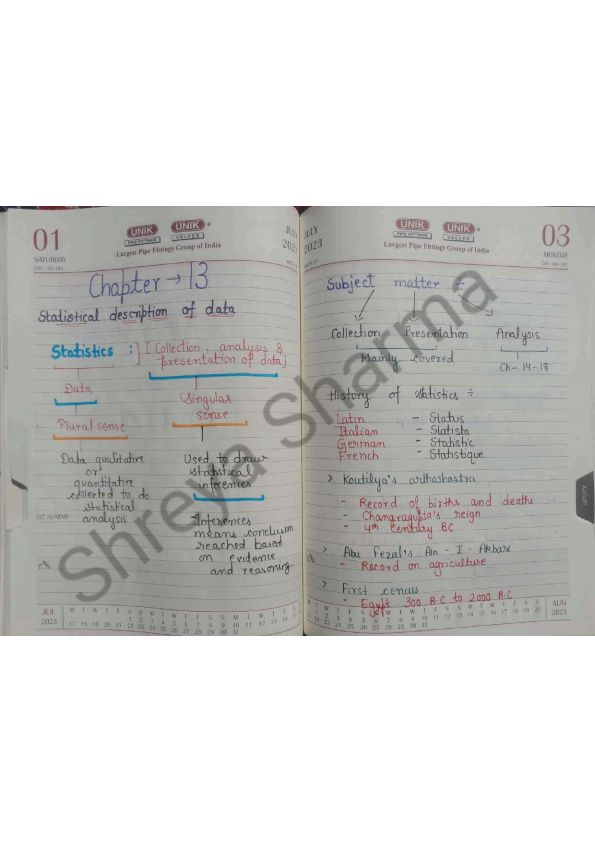 01
SATURDAY
UNIK
PIPE FITTINGS
UNIK
VALVES
Largest Pipe Fittings Group of India
JULY
2023
Chapter → 13
Statistical description of data
Statistics :
[Collection, analysis &
presentation of data]
Data
Singular
sense
Plural sense
Data qualitative
or
quantitative
collected to do
statistical
analysis
Used to draw
statistical
inferences
Inferences
means conclusion
reached based
on evidence
and reasoning
02 SUNDAY
JUL
2023
M T W T F S S M T W T F S S M T W T F S S
JULY
2023
UNIK
PIPE FITTINGS
UNIK
VALVES
Largest Pipe Fittings Group of India
03
MONDAY
Subject matter ÷
Collection Presentation Analysis
Mainly covered
Ch-14-18
History of statistics ÷
Latin - Status
Italian - Statista
German - Statistic
French - Statistique
> Kautilya's arthashastra
- Record of births and deaths
- Changragupta's reign
- 4th Century BC
> Abu Fezal's Ain-I-Akbari
- Record on agriculture
> First census
- Egypt 300 B.C to 2000 B.C
AUG
2023
AUGUST
Shreya Sharma